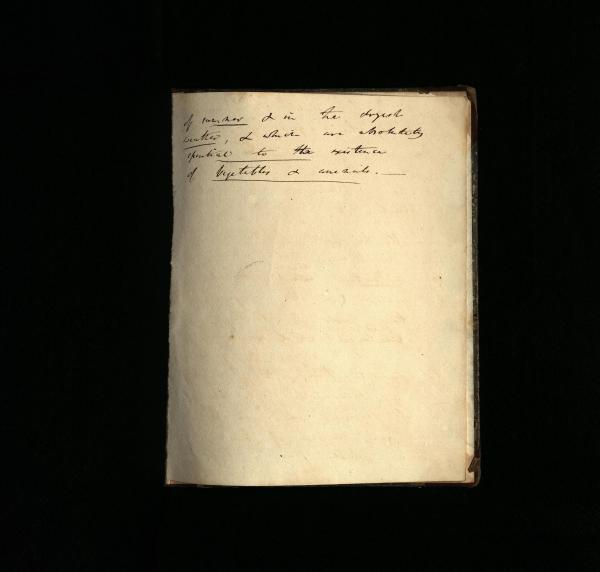 of summer & in the dryest
weather, & which are absolutely
essential to the existence
of Vegetables & animals. —